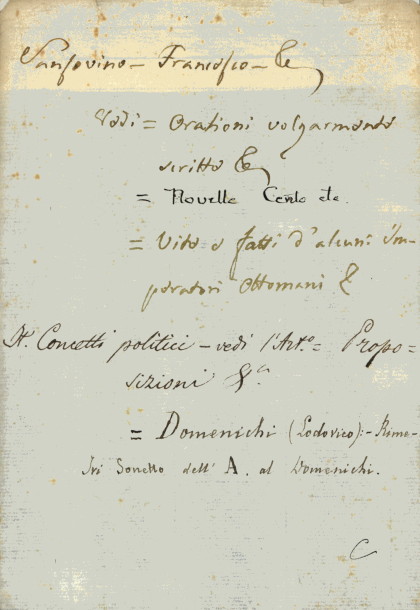 Sansovino - Francesco - &
Vedi = Orationi volgarmente
scritte &
= Novelle Cento etc.
= Vite e fatti d'alcuni Im-
peratori Ottomani &
Concetti politici - vedi l'Art.º = Propo-
sizioni &.ª
= Domenichi (Lodovico): - Rime -
Ivi Sonetto dell' A. al Domenichi.
C